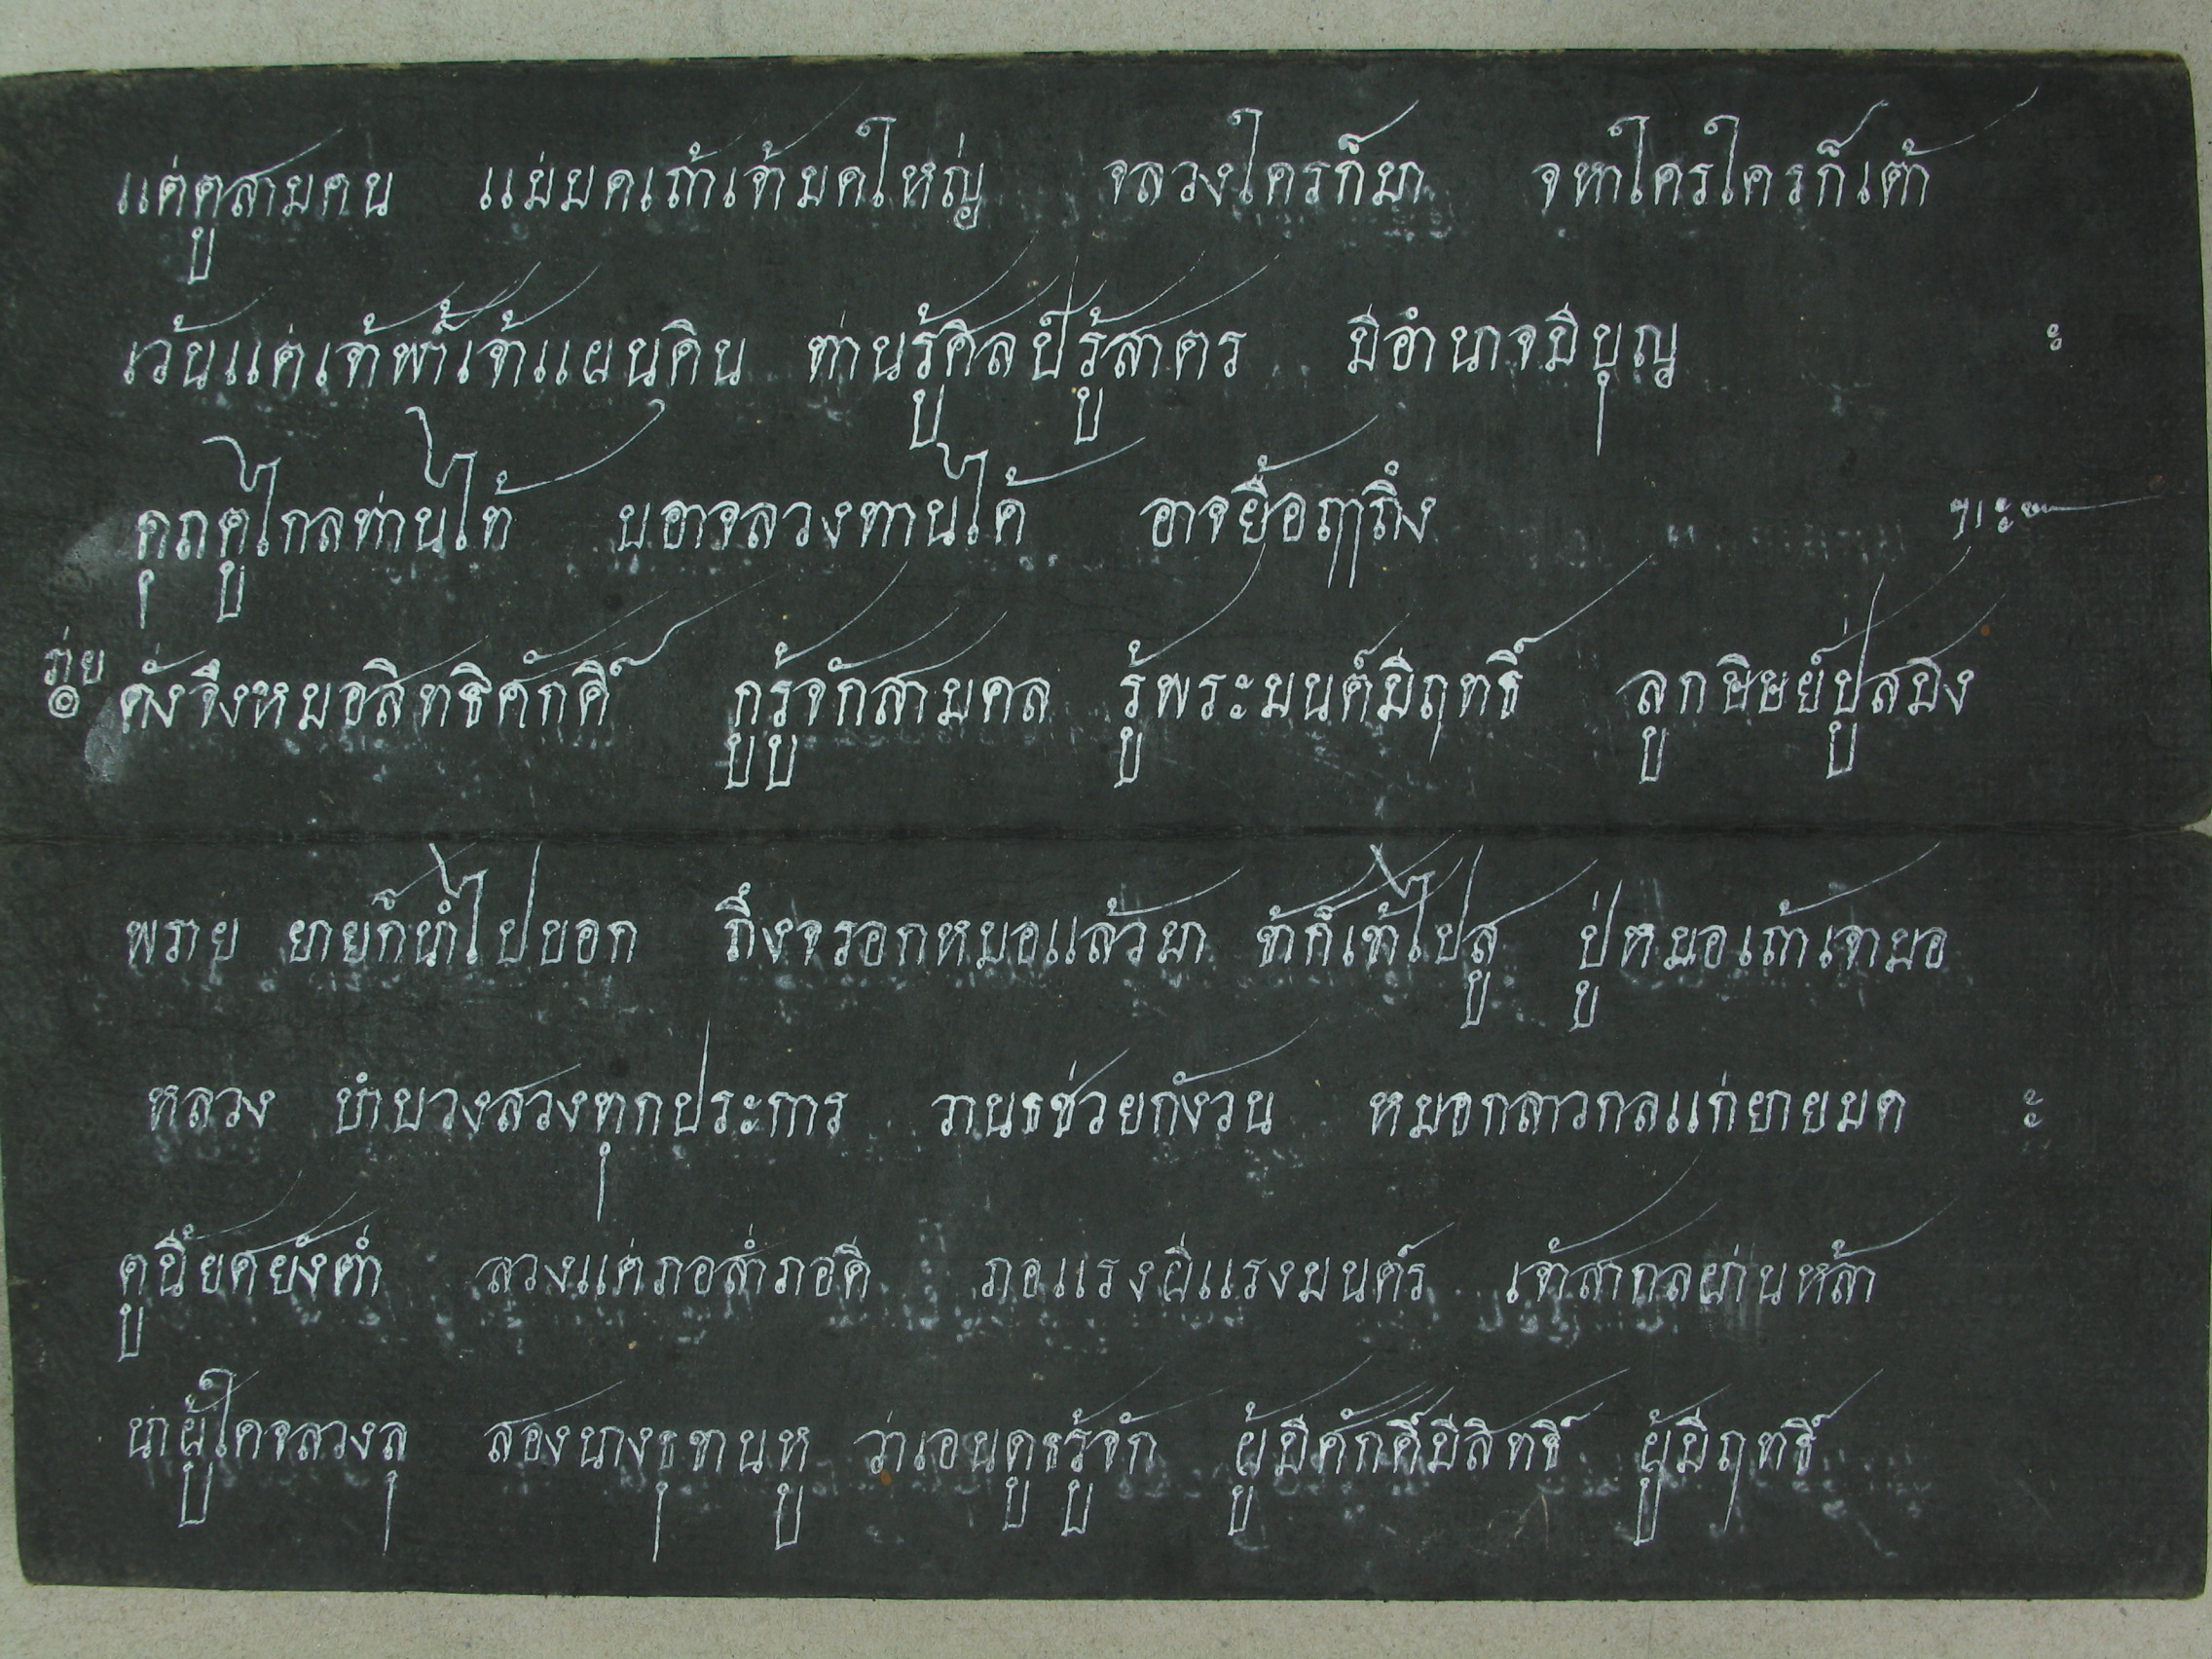 แต่ตูสามคน แม่มดเถ้าเจ้ามดใหญ่ จลวงใครก็มา จหาใครใครก็เต้า
เว้นแต่เจ้าฟ้าเจ้าแผนดิน ท่านรู้ศิลป์รู้สาตร มีอำนาจมีบุญ ะ
คุกตูไกลท่านไท้ บอาจลวงทานได้ อาจยื้อฤๅถึง
ร่าย ๏ ดั่งจึงหมอสิทธิศักดิ์ กูรู้จักสามคล รู้พระมนต์มีฤทธิ์ ลูกษิษย์ปู่สมิง
พราย ยายก็นำไปบอก ถึงจรอกหมอแล้วมา ข้าก็เข้าไปสู ปู่หมอเถ้าเจามอ
หลวง บำบวงสวงทุกประการ วานธช่วยกังวน หมอกลาวกลแก่ยายมด ะ
ตูนี้ยศยังต่ำ ลวงแต่ภอล่ำภอดี ภอแรงผีแรงมนตร์ เจ้าสากลผ่านหล้า
น่าผู้ใดจลวงลุ สองนางธุทานหู ว่าเอนดูธรู้จัก ผู้มีศักดิ์มีสิทธิ์ ผู้มีฤทธิ์